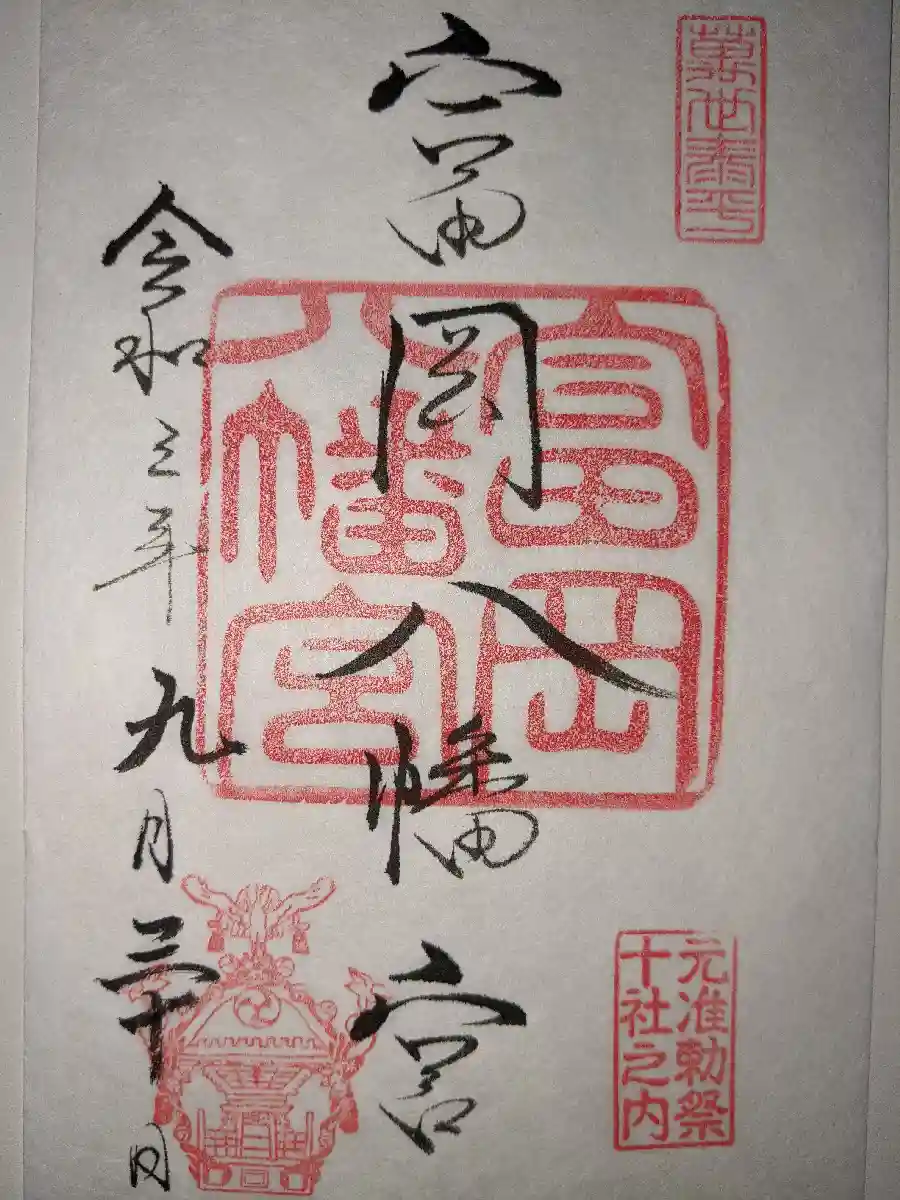 萬世泰平
元准勅祭
十社之内
富岡八幡宮
富岡
八幡宮
令和三年九月三十日